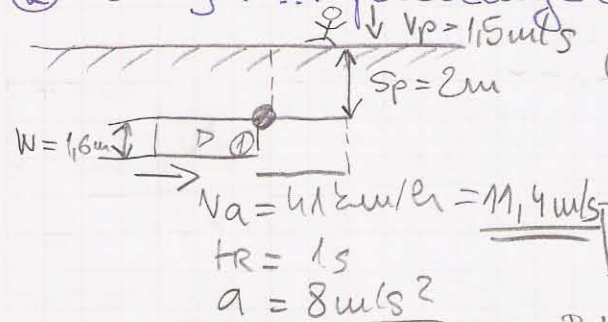 ②
Vp = 1,5 m/s
Sp = 2m
W = 1,6m
D ①
Va = 41 km/h = 11,4 m/s
tR = 1s
a = 8 m/s²